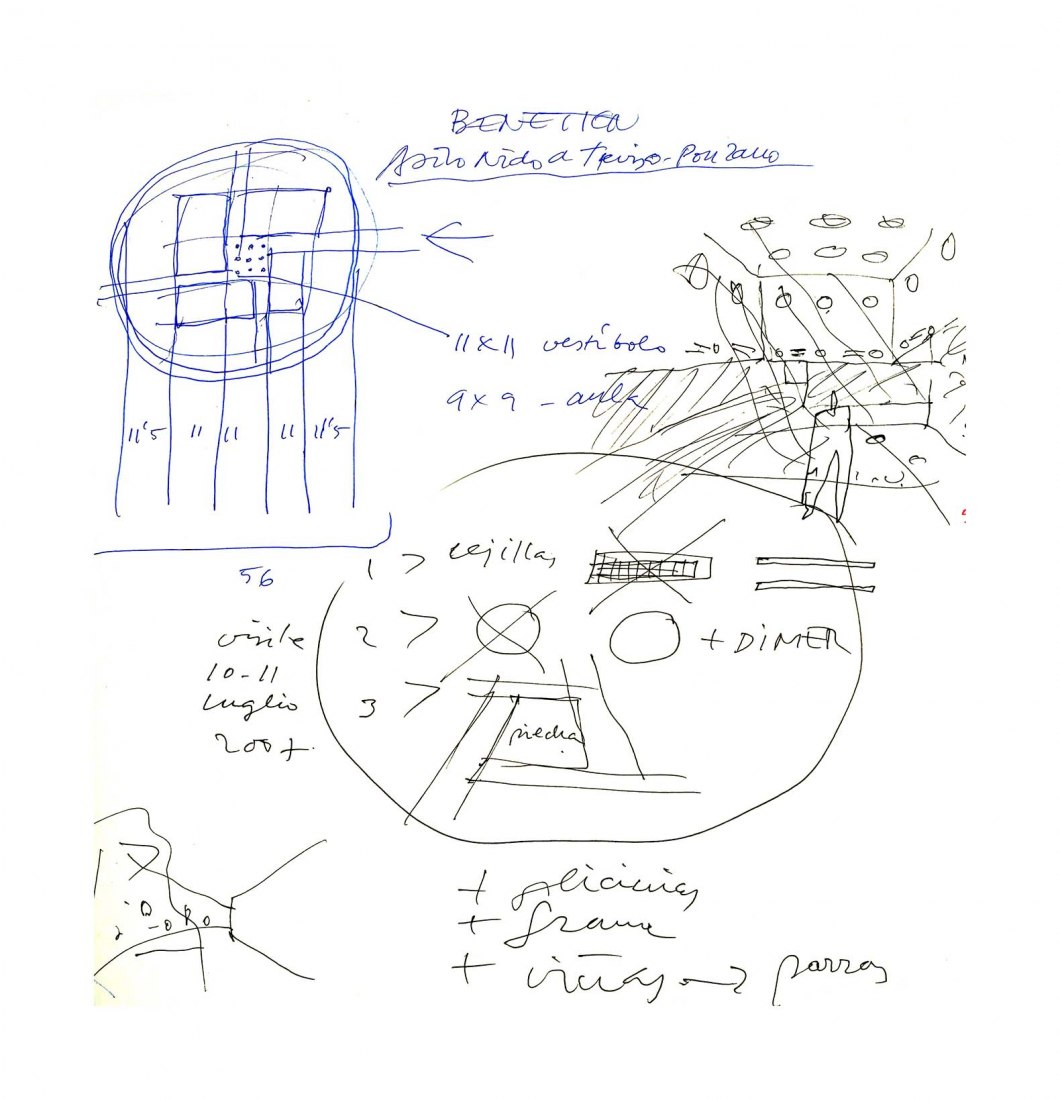 BENETTON
Asilo Nido a Treviso-Ponzano
11x11 vestíbolo
9x9 - aula
11'5 11 11 11 11'5
56
1 > rejillas
2 > + DIMER
3 >
piedra
visite
10-11
Luglio
2007.
+ glicinias
+ grama
+ viñas → parras